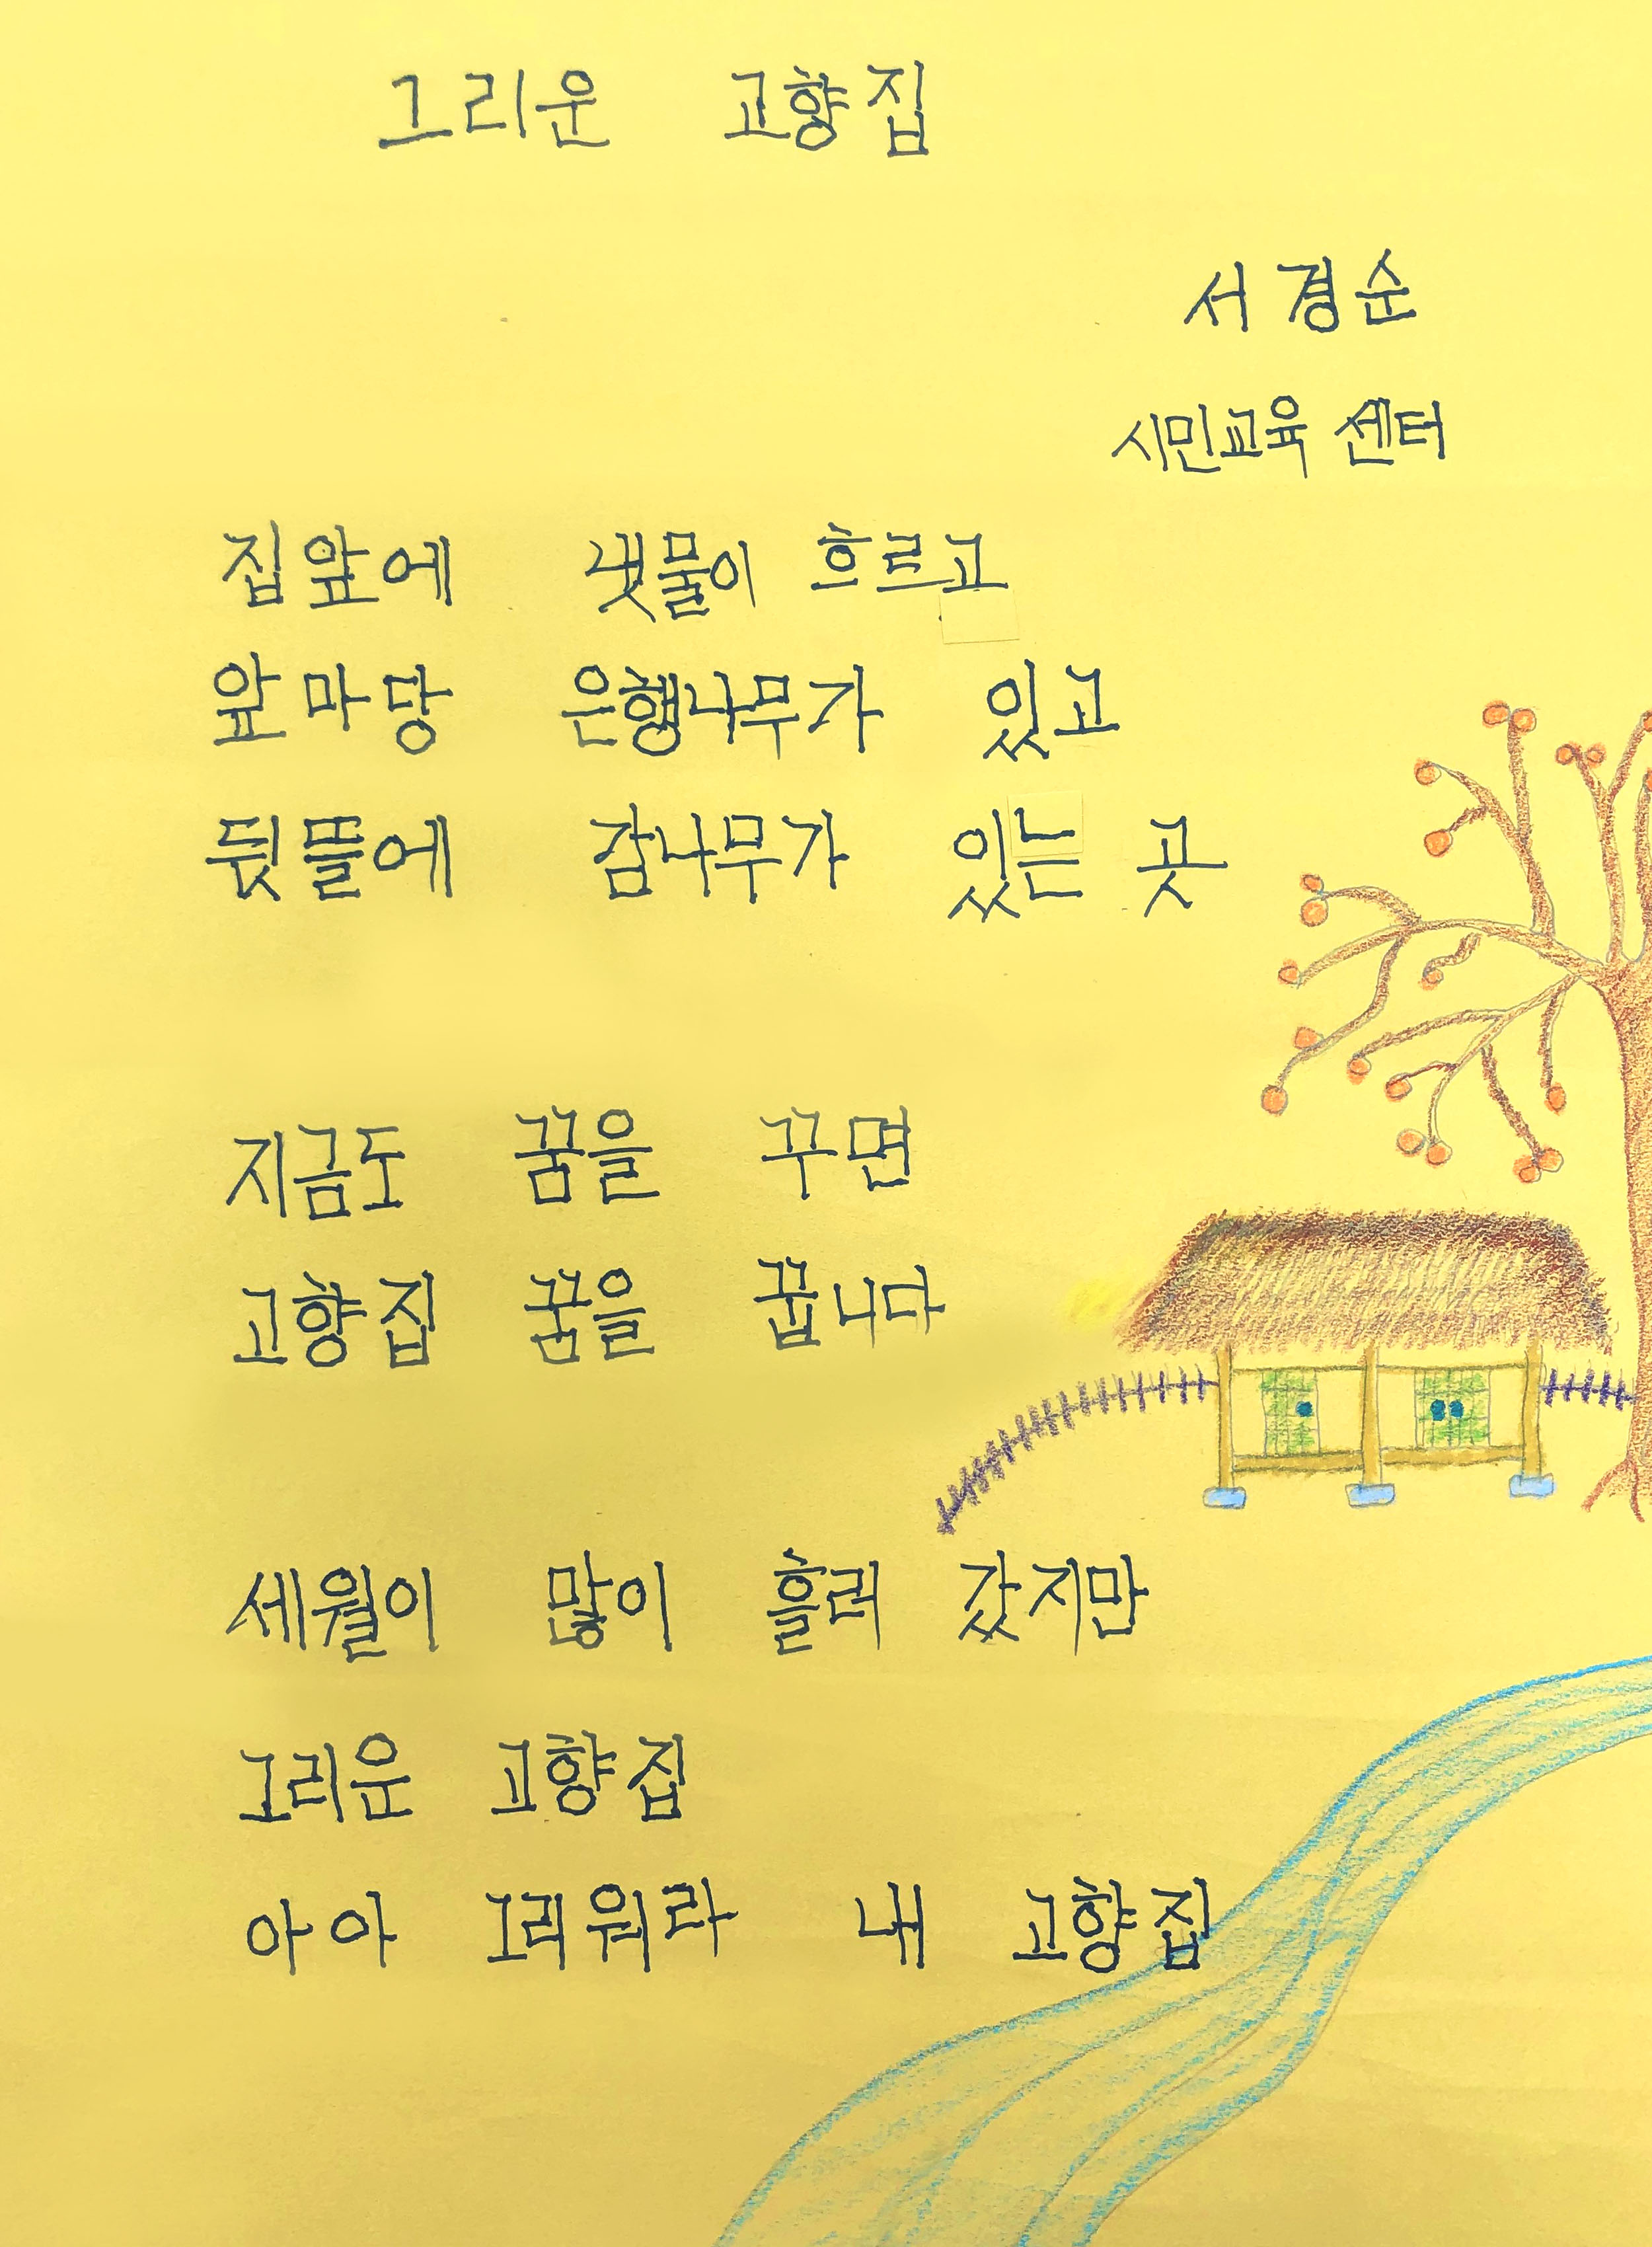 그리운 고향집
서경순
시민교육 센터
집앞에 냇물이 흐르고
앞마당 은행나무가 있고
뒷뜰에 감나무가 있는 곳
지금도 꿈을 꾸면
고향집 꿈을 꿉니다
세월이 많이 흘러 갔지만
그리운 고향집
아아 그리워라 내 고향집